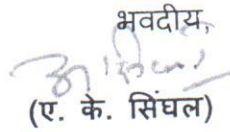 भवदीय,
(ए. के. सिंघल)